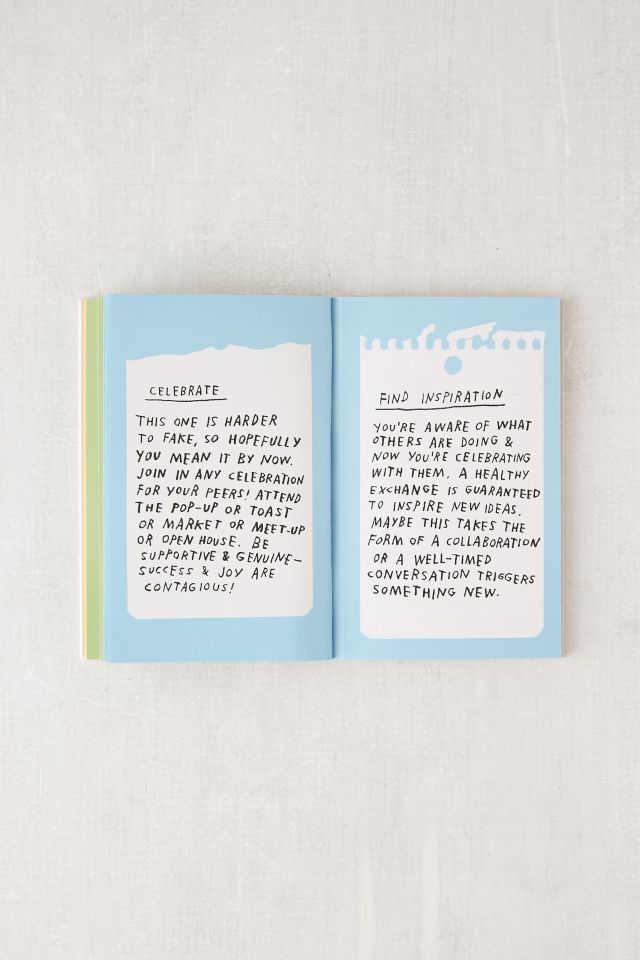 CELEBRATE
THIS ONE IS HARDER
TO FAKE, SO HOPEFULLY
YOU MEAN IT BY NOW.
JOIN IN ANY CELEBRATION
FOR YOUR PEERS! ATTEND
THE POP-UP OR TOAST
OR MARKET OR MEET-UP
OR OPEN HOUSE. BE
SUPPORTIVE & GENUINE-
SUCCESS & JOY ARE
CONTAGIOUS!
FIND INSPIRATION
YOU'RE AWARE OF WHAT
OTHERS ARE DOING &
NOW YOU'RE CELEBRATING
WITH THEM. A HEALTHY
EXCHANGE IS GUARANTEED
TO INSPIRE NEW IDEAS.
MAYBE THIS TAKES THE
FORM OF A COLLABORATION
OR A WELL-TIMED
CONVERSATION TRIGGERS
SOMETHING NEW.